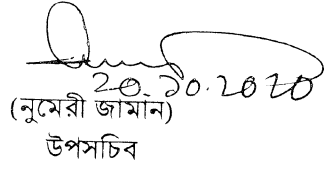 20.10.2020
(নুমেরী জামান)
উপসচিব